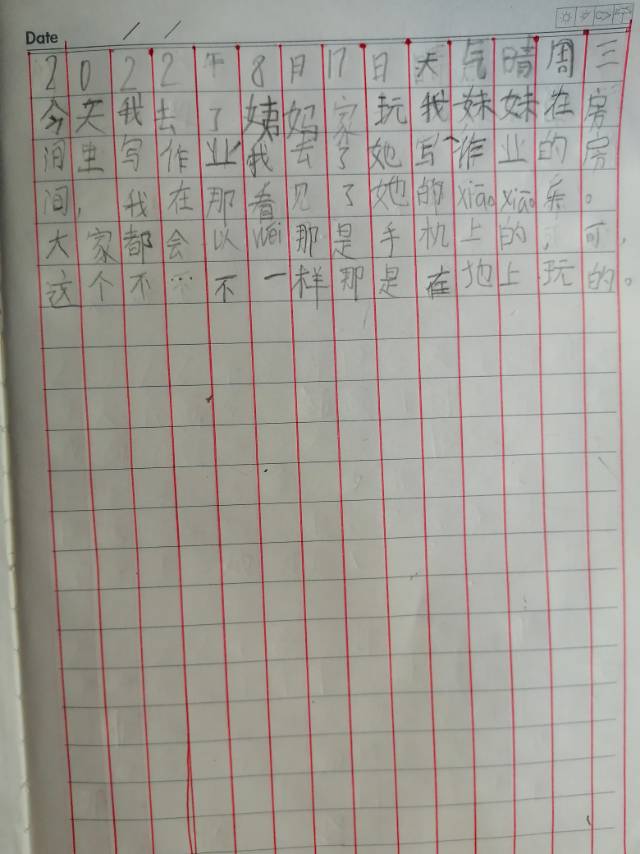 Date / /
2022年8月17日天气晴周三
今天我去了姨妈家玩我妹妹在房
间里写作业我去了她写作业的房
间，我在那看见了她的xiāoxiāo乐。
大家都会以wéi那是手机上的，可，
这个不…不一样那是在地上玩的。